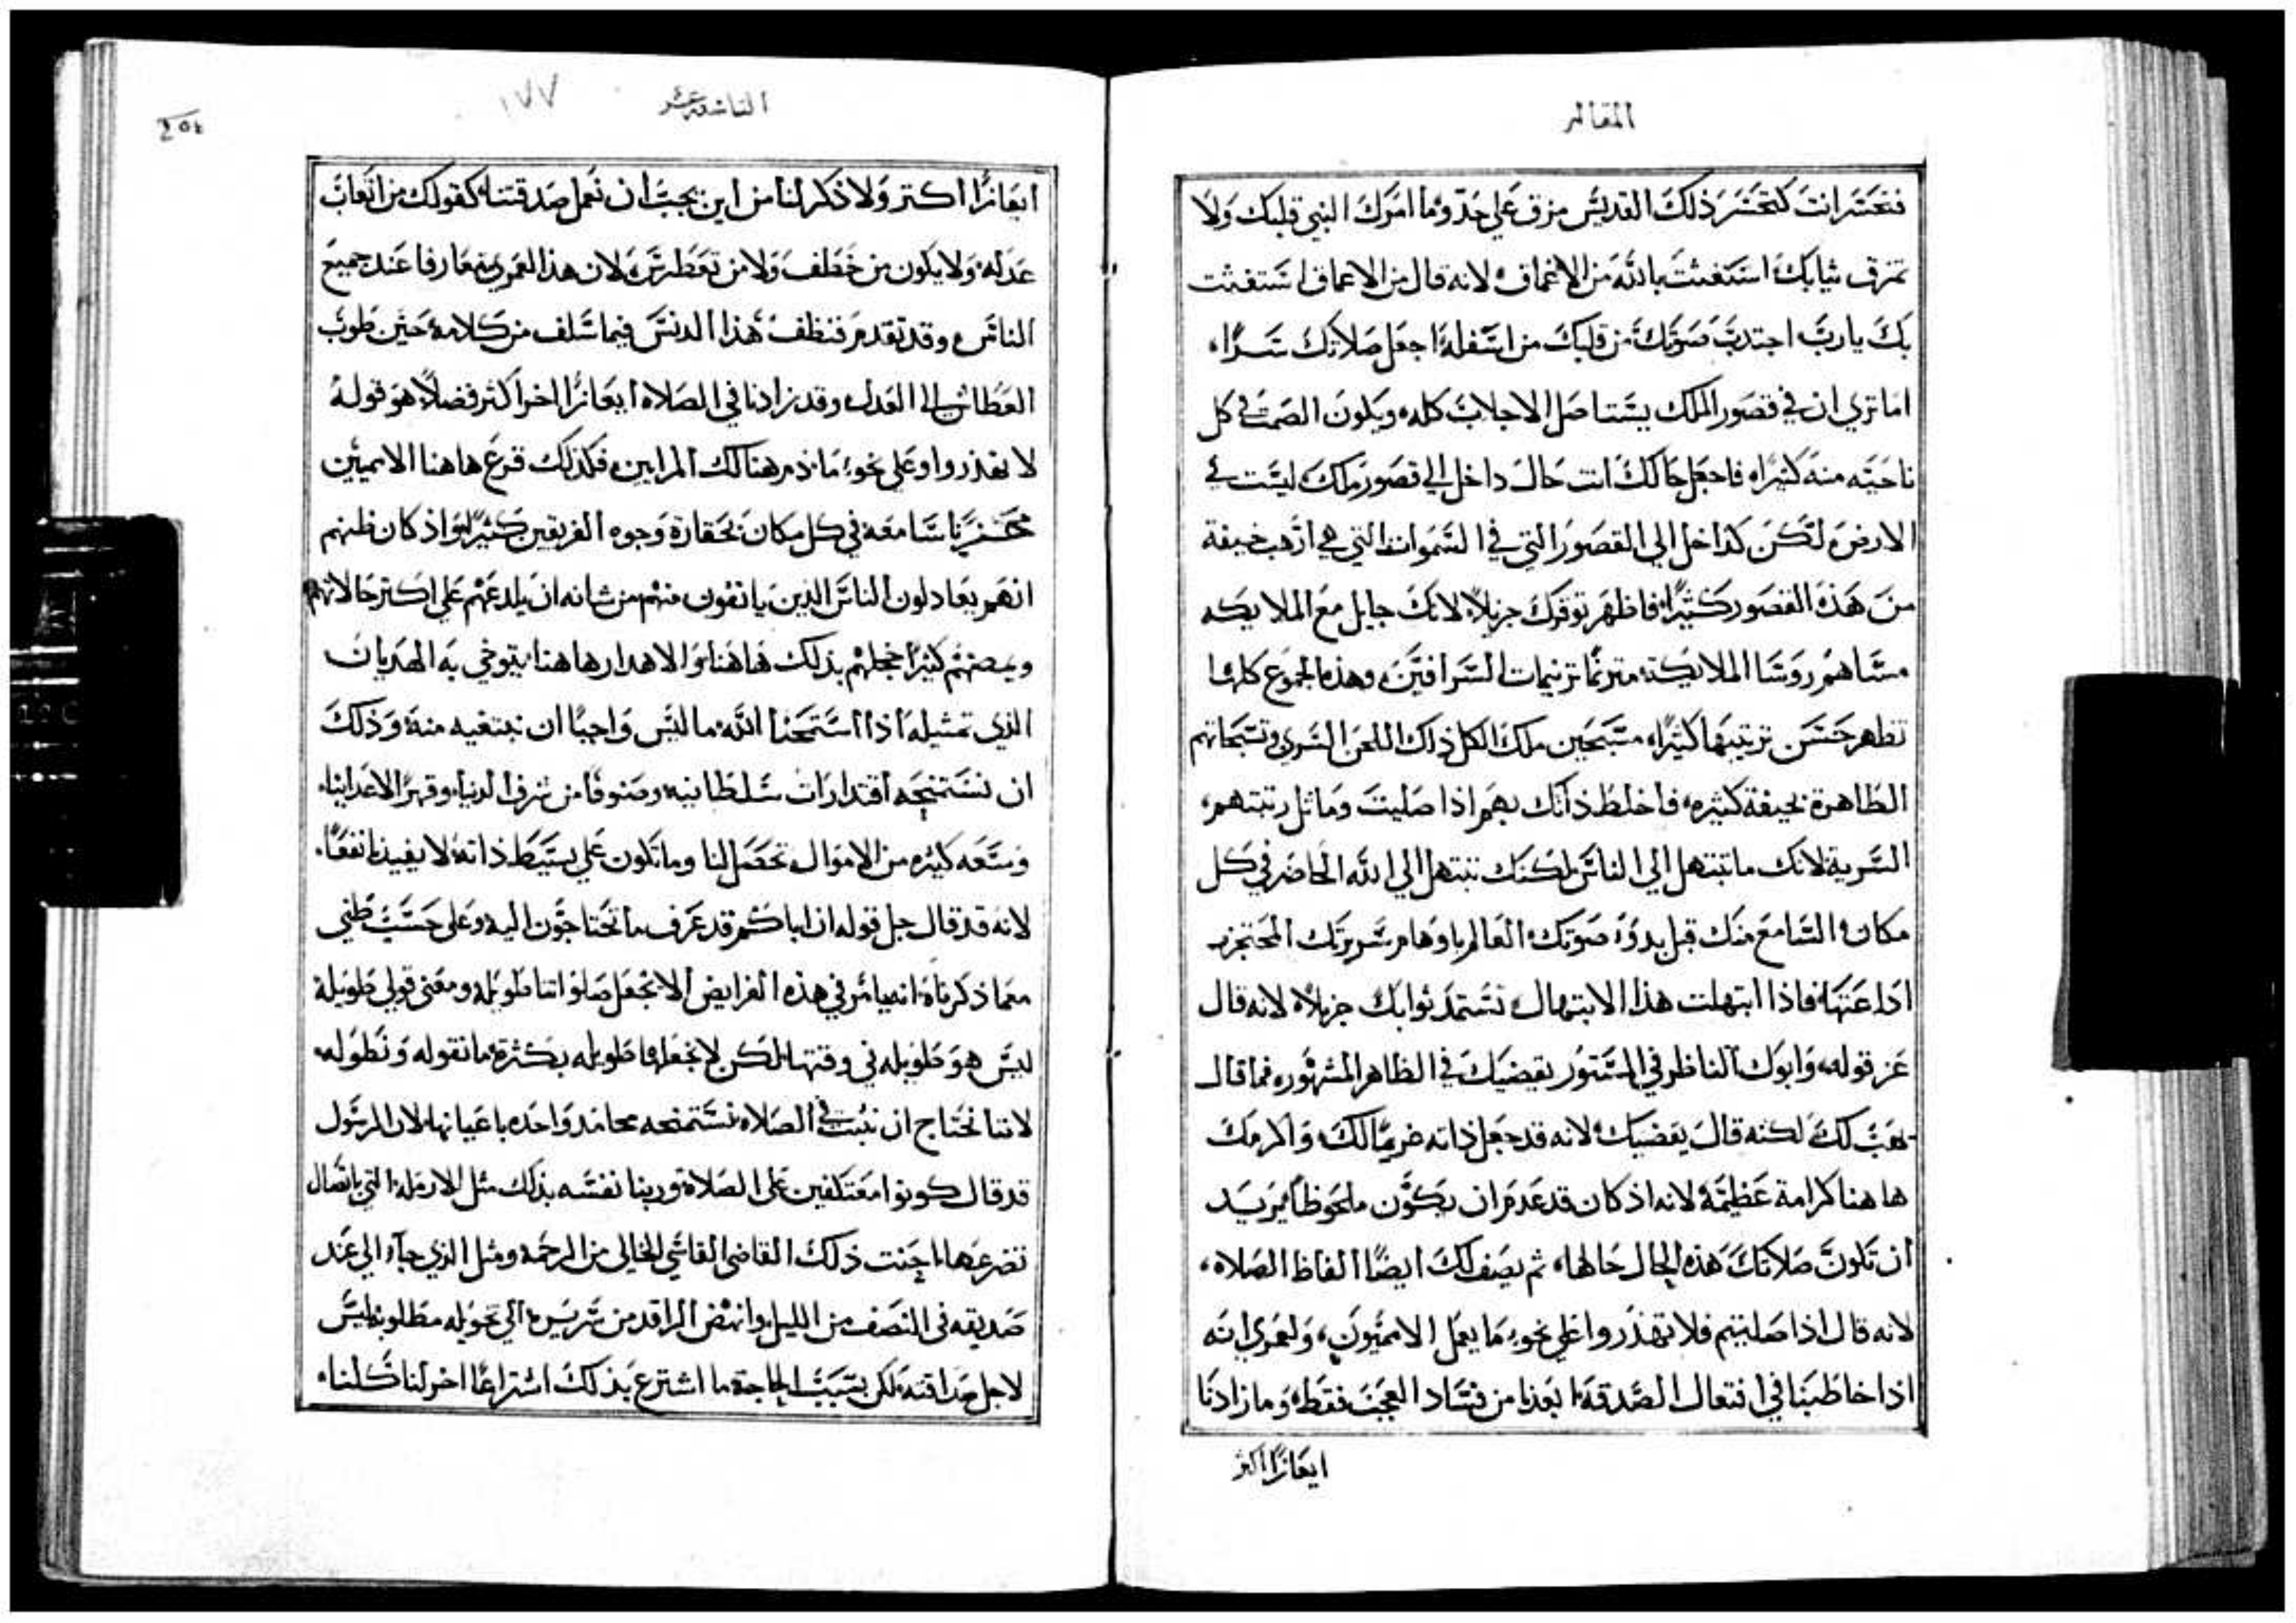 المقاله
فتخسر انت كتخسر ذلك القديس مزق على حد وما امرك النبي قلبك ولا
تمزق ثيابك استغثت بالله من الاعماق لانه قال من الاعماق استغثت
بك يارب اجتدب صوتك من قلبك من اسفله اجعل صلاتك سرا
اما تري ان في قصور الملك يستاصل الاجلاب كله ويكون الصمت في كل
ناحيته منه كثيرا فاجعل حالك انت حال داخل الي قصور ملك ليست في
الارض لكن كداخل الي القصور التي في السموات التي هي ارهب خيفة
من هذه القصور كثيرا فاظهر توقرك جزيلا لانك جايل مع الملايكه
مساهم روسا الملايكه مترنما ترنيمات السرافين وهذه الجموع كلها
تظهر حسن ترتيبها كثيرا مسبحين ملك الكل ذلك اللحن السري وتسبحاتهم
الطاهرة بخيفة كثيره فاخلط ذاتك بهم اذا صليت وماثل رتبتهم
السرية لانك ما تبتهل الي الناس لكنك تبتهل الي الله الحاضر في كل
مكان السامع منك قبل بدو صوتك العالم باوهام سريرتك المحتجز
اداعتها فاذا ابتهلت هذا الابتهال تستمد ثوابك جزيلا لانه قال
عز قوله وابوك الناظر في المستور يقضيك في الظاهر المشهور فما قال
يهب لك لكنه قال يقضيك لانه قد جعل ذاته غريما لك واكرمك
هاهنا كرامة عظيمة لانه اذ كان قد عدم ان يكون ملحوظا يريد
ان تكون صلاتك هذه الحال حالها ثم يصف لك ايضا الفاظ الصلاه
لانه قال اذا صليتم فلا تهذروا علي نحو ما يعمل الامميون ولعمري انه
اذا خاطبنا في افتعال الصدقه ابعدنا من فساد العجب فقط وما زادنا
ايعازا اكثر
التاسعه عشر
١٧٧
ايعازا اكتر ولا ذكر لنا من اين يجب ان نعمل صدقتنا كقولك من اتعاب
عدله ولا يكون من خطف ولا من تغطرس لان هذا لعمري متعارفا عند جميع
الناس وقد تقدم فنظف هذا الدنس فيما سلف من كلامه حين طوب
العطاش الي العدل وقد زادنا في الصلاه ايعازا اخر اكثر فضلا هو قوله
لا تهذروا وعلي نحو ما ذم هنالك المرايين فكذلك قرع هاهنا الامميين
سامعه في كل مكان بحقارة وجوه الفريقين كثيرا واذ كان ظنهم
انهم يعادلون الناس الذين يانفون منهم من شانه ان يلدعهم علي اكتر حالاتهم
ويمضهم كثيرا خجلهم بذلك هاهنا والاهدار هاهنا يتوخي به الهديان
الذي تمثيله اذا استمحنا الله ما ليس واجبا ان نبتغيه منه وذلك
ان نستمنحه اقتدارات سلطانيه وصنوفا من شرف الدنيا وقهر الاعداينا
وسعه كثيره من الاموال تحصل لنا وما تكون علي بسيط ذاته لا يفيدنا نفعا
لانه قد قال جل قوله ان اباكم قد عرف ما تحتاجون اليه وعلى حسب ظني
معما ذكرناه انه يامر في هذه الفرايض الا نجعل صلواتنا طويله ومعنى قولي طويلة
ليس هو طويله في وقتها لكن لا نجعلها طويله بكثرة ما نقوله ونطوله
لاننا نحتاج ان نثبت في الصلاه نستمنحه محامد واحده باعيانها لان الرسول
قد قال كونوا معتكفين على الصلاة وربنا نفسه بذلك مثل الارمله التي باتصال
تضرعها احنت ذلك القاضي القاسي الخالي من الرحمه ومثل الذي جاء الي عند
صديقه في النصف من الليل وانهض الراقد من سريره الي تحويله مطلوبه ليس
لاجل صداقته لكن بسبب الحاجة ما اشترع بذلك اشتراعا اخر لنا كلنا